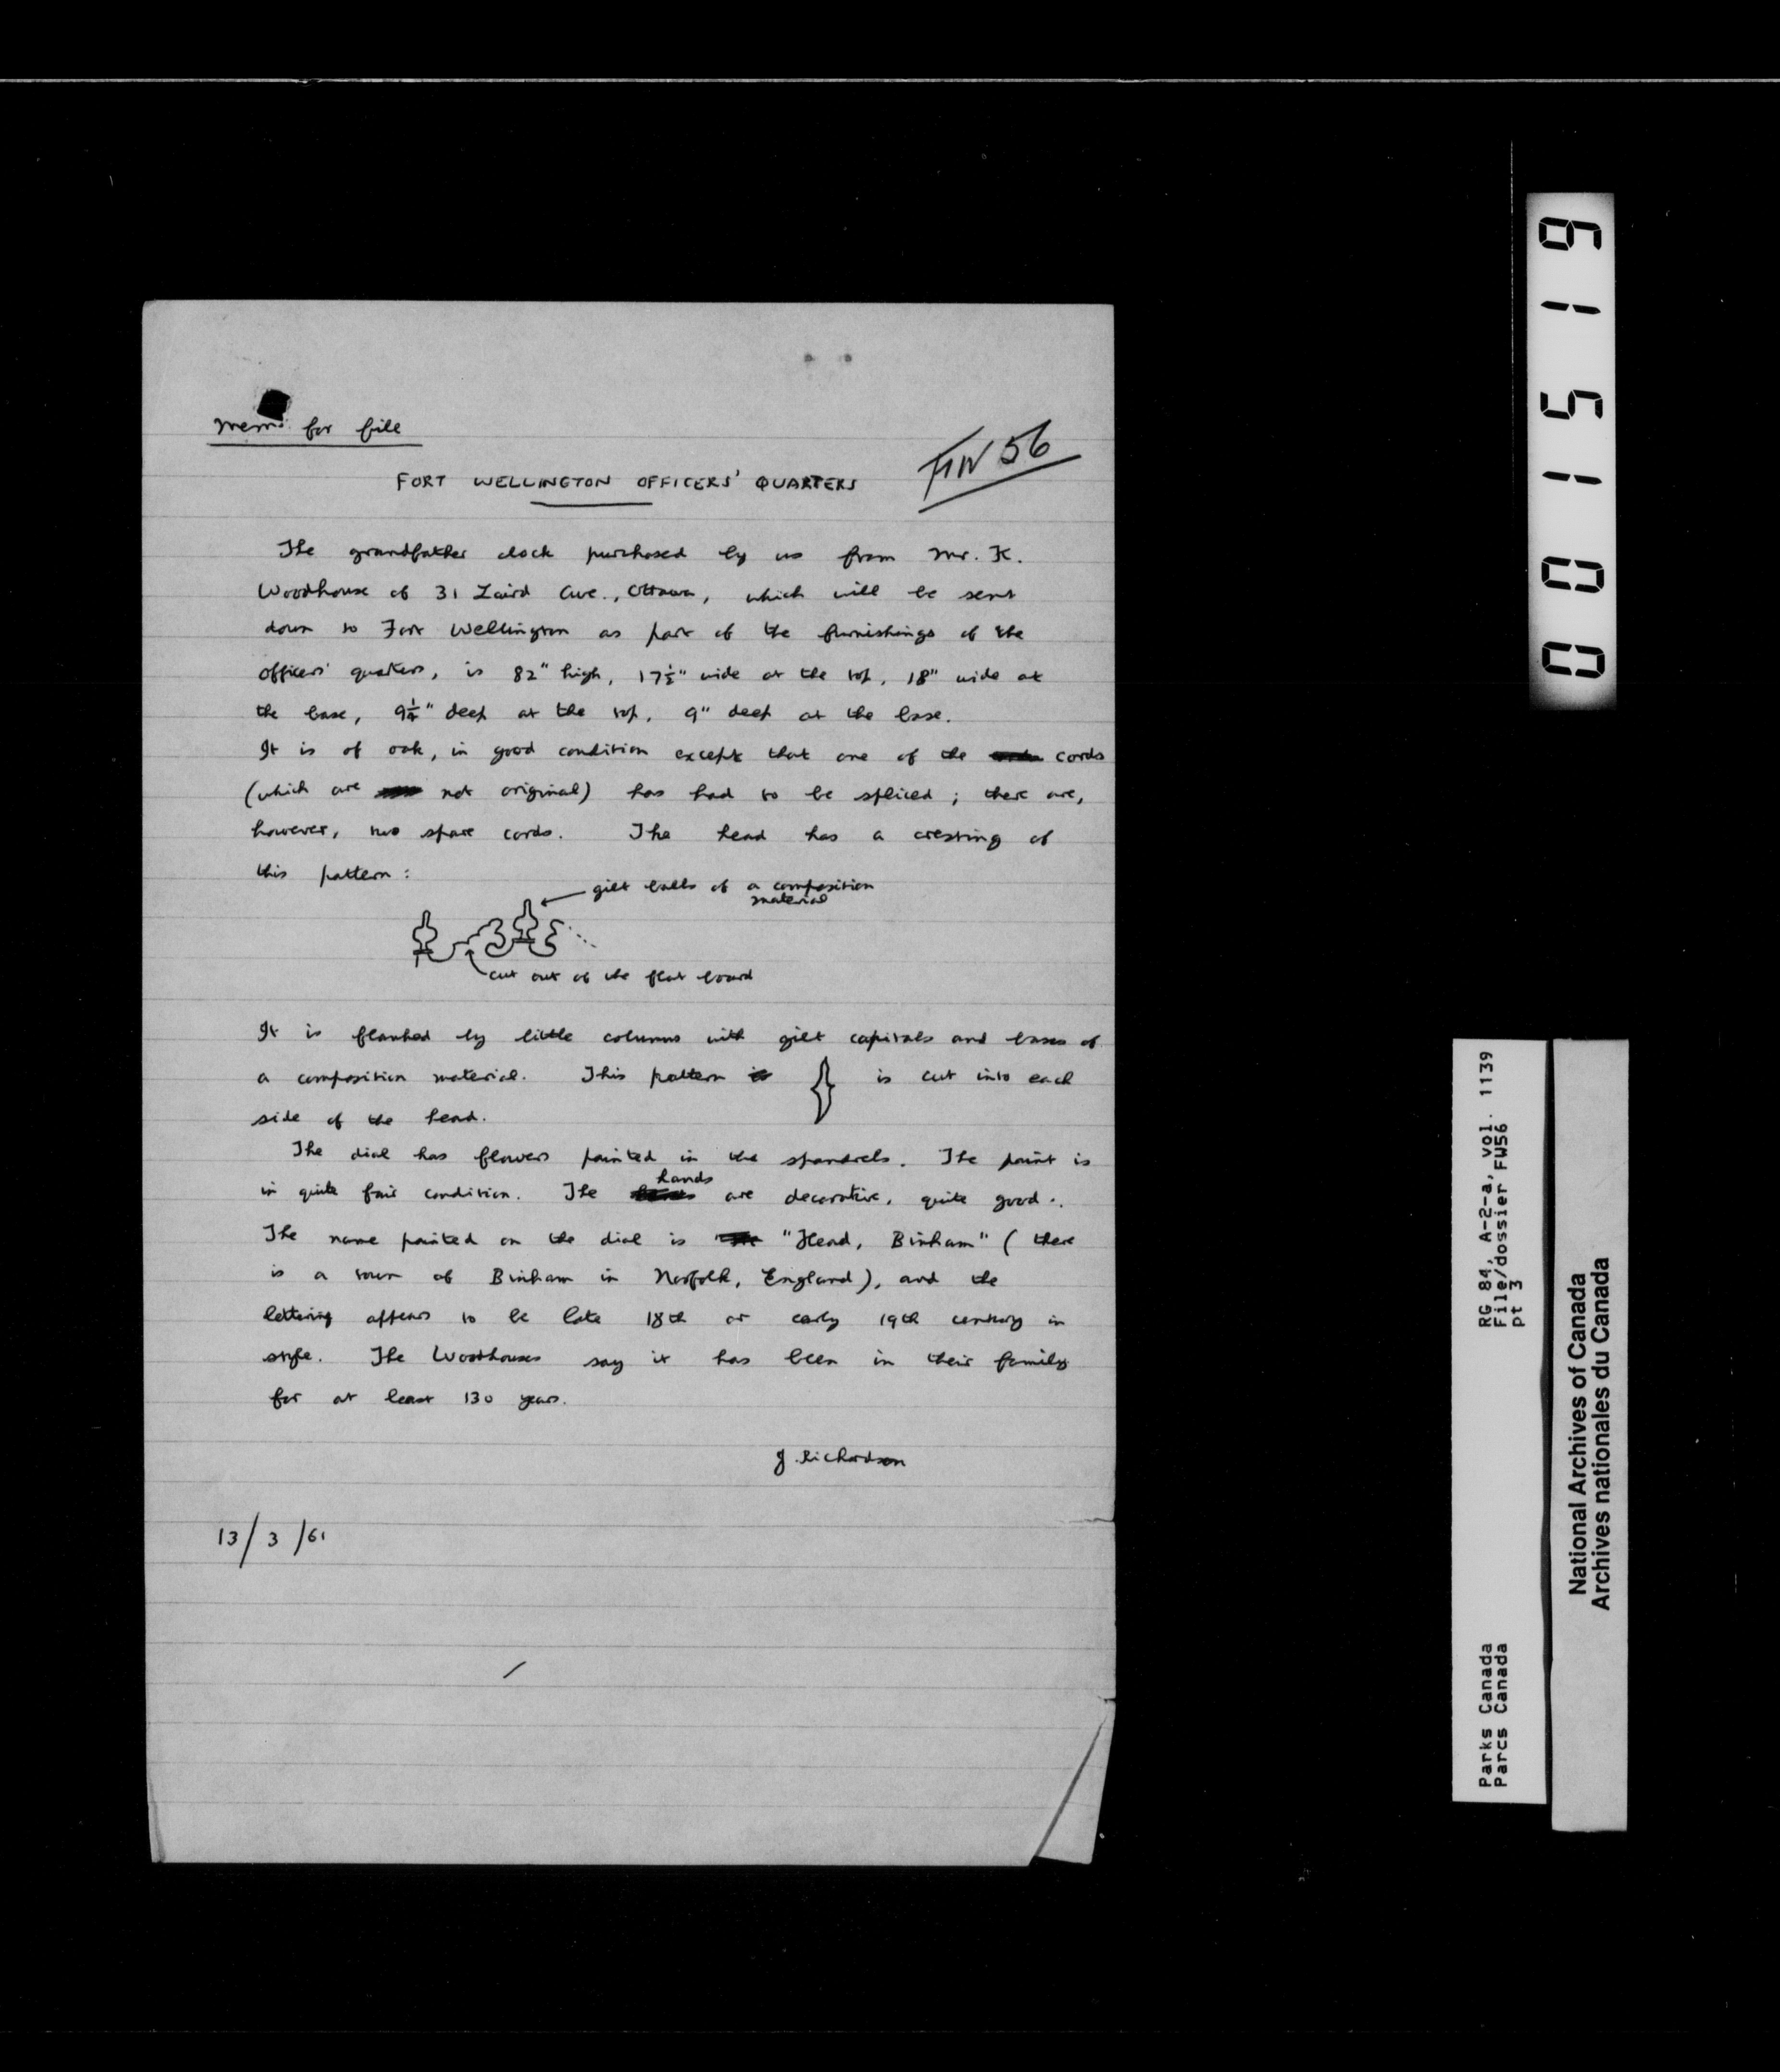 Memo for file
FW 56
FORT WELLINGTON OFFICERS' QUARTERS
The grandfather clock purchased by us from Mr. K.
Woodhouse of 31 Laird Ave., Ottawa, which will be sent
down to Fort Wellington as part of the furnishings of the
officers' quarters, is 82" high, 17½" wide at the top, 18" wide at
the base, 9¼" deep at the top, 9" deep at the base.
It is of oak, in good condition except that one of the cords
(which are not original) has had to be spliced; there are,
however, two spare cords. The head has a cresting of
this pattern:
gilt balls of a composition
material
cut out of the flat board
It is flanked by little columns with gilt capitals and bases of
a composition material. This pattern is } is cut into each
side of the head.
The dial has flowers painted in the spandrels. The paint is
in quite fair condition. The hands are decorative, quite good.
The name painted on the dial is "Head, Binham" (there
is a town of Binham in Norfolk, England), and the
lettering appears to be late 18th or early 19th century in
style. The Woodhouses say it has been in their family
for at least 130 years.
J. Richardson
13/3/61
001519
RG 84, A-2-a, vol. 1139
File/dossier FW56
pt 3
Parks Canada
Parcs Canada
National Archives of Canada
Archives nationales du Canada